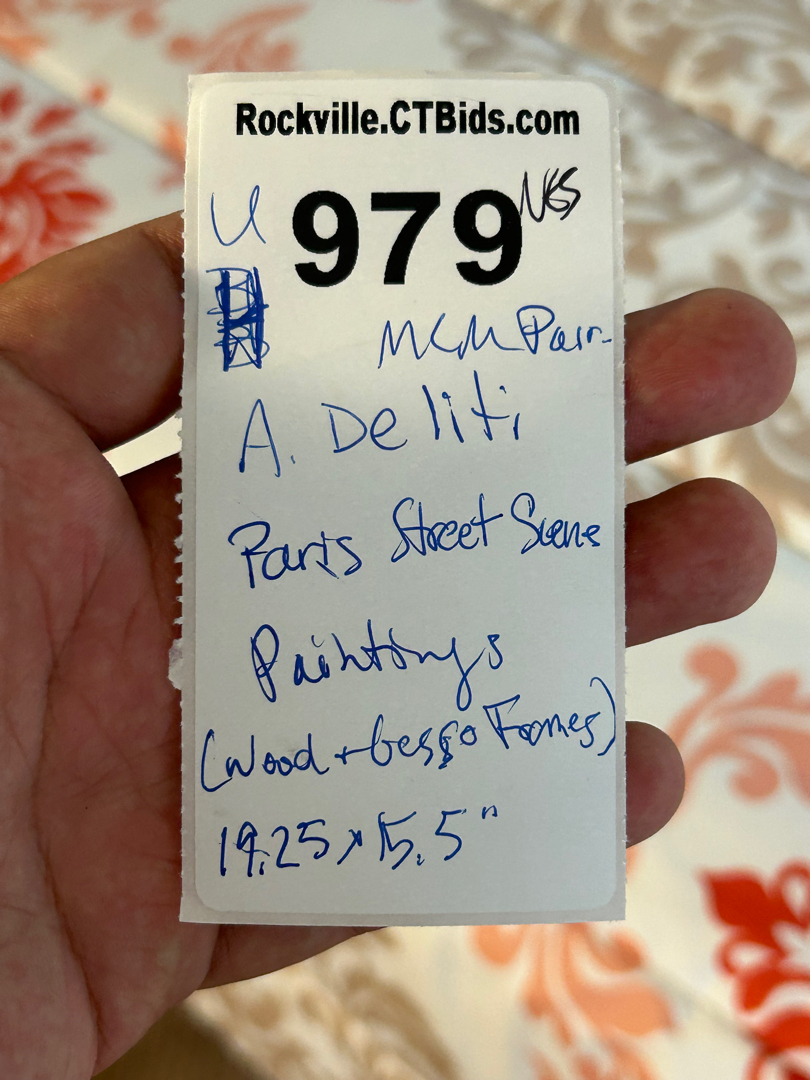 Rockville.CTBids.com
U 979 NGS
MCM Pair
A. Deliti
Paris Street Scene
Paintings
(Wood + Gesso Frames)
19.25 x 15.5"